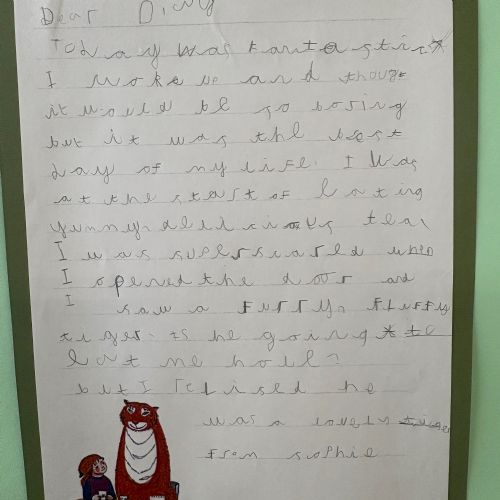 Dear Diary
Today was Fantastic
I woke up and though
it would be so boring
but it was the best
day of my life. I was
at the start of eating
yummy, delicious tea,
I was super scared when
I opened the door and
I saw a Furry, Fluffy
tiger. Is he going to
eat me houl?
but I relised he
was a lovely tiger
from sophie